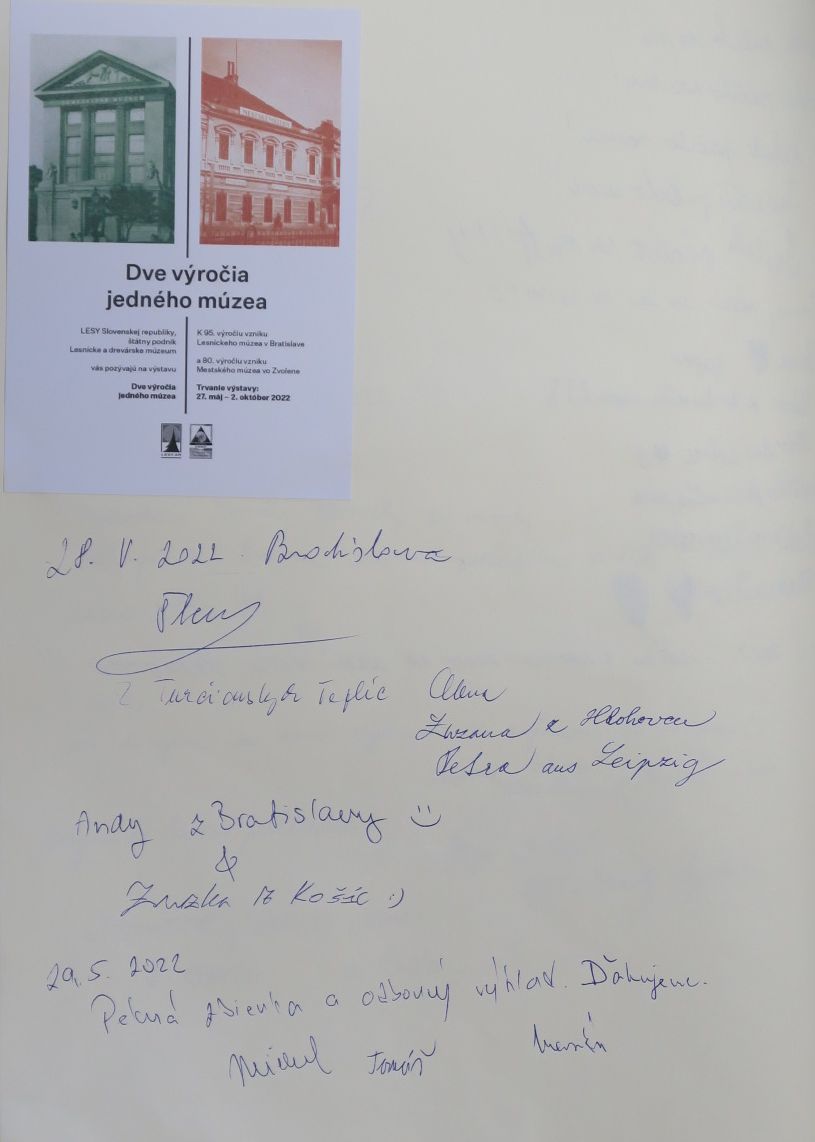 Dve výročia
jedného múzea
LESY Slovenskej republiky,
štátny podnik
Lesnícke a drevárske múzeum
vás pozývajú na výstavu
Dve výročia
jedného múzea
K 95. výročiu vzniku
Lesníckeho múzea v Bratislave
a 80. výročiu vzniku
Mestského múzea vo Zvolene
Trvanie výstavy:
27. máj – 2. október 2022
28. V. 2022. Bratislava
Z Turčianskych Teplíc Alena
Zuzana z Hlohovca
Petra aus Leipzig
Andy z Bratislavy
&
Zuzka z Košíc :)
29.5. 2022
Pekná zbierka a odborný výklad. Ďakujeme.
Tomáš